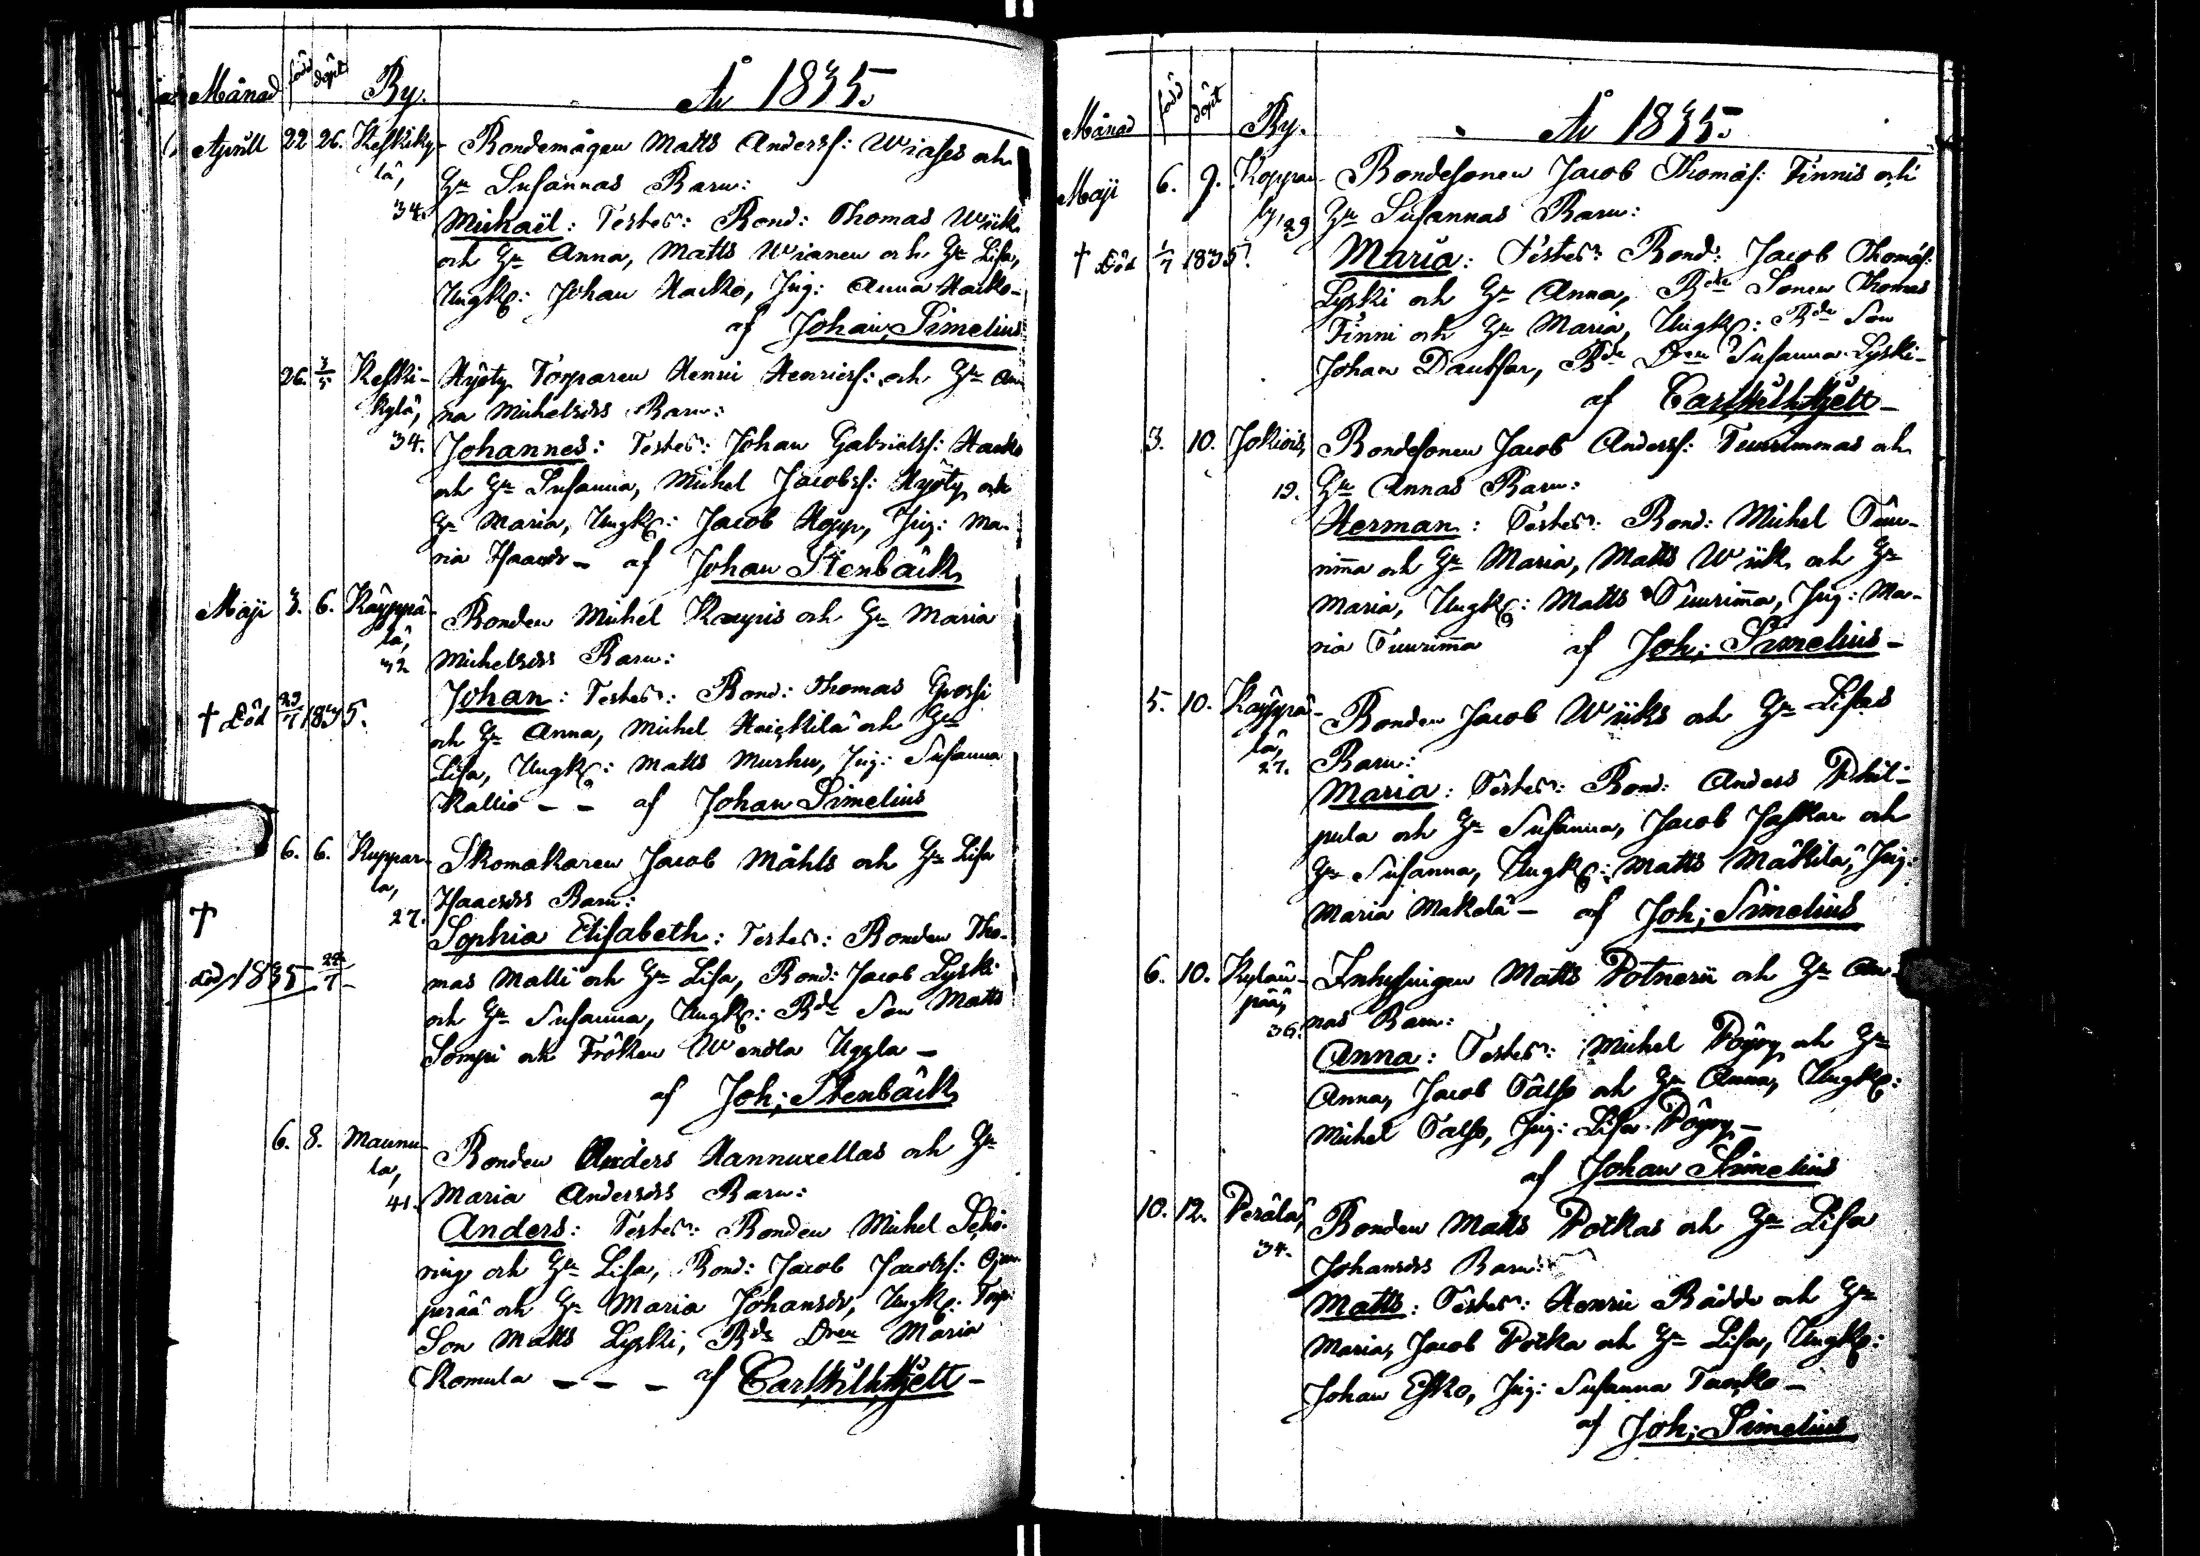 Månad född döpt By. År 1835.
Aprill 22 26. Keskiky- Bondemågen Matts Anderss: Wiases och
lä, Hu Susannas Barn:
34. Michaël: Testes: Bond: Thomas Wiik
och Hu Anna, Matts Wianen och Hu Lisa,
Ungk: Johan Hacko, Pig: Anna Hacko-
af Johan Simelius
26. 3/5 Keski- Hyöty Torparen Henric Henrics: och Hu An
kylä, na Michelsdrs Barn:
34. Johannes: Testes: Johan Gabriels: Hacko
och Hu Susanna, Michel Jacobs: Hyöty och
Hu Maria, Ungk: Jacob Hopp, Pig: Ma-
ria Isaacsdr – af Johan Stenbäck
Maji 3. 6. Käyppä- Bonden Michel Kauppis och Hu Maria
lä,
32 Michelsdrs Barn:
Johan: Testes: Bond: Thomas Grossi
† Död 29/7 1835. och Hu Anna, Michel Haickilä och Hu
Lisa, Ungk: Matts Murhu, Pig: Susanna
Kallio – – af Johan Simelius
6. 6. Kuppar- Skomakaren Jacob Måhls och Hu Lisa
la, Isaacsdrs Barn:
† 27. Sophia Elisabeth: Testes: Bonden Tho-
död 1835 24/7 – mas Malli och Hu Lisa, Bond: Jacob Lyski
och Hu Susanna, Ungk: Bde Son Matts
Sompi och Fröken Wendla Uggla –
af Joh; Stenbäck
6. 8. Maunu- Bonden Anders Hannuxellas och Hu
la,
41. Maria Andersdrs Barn:
Anders: Testes: Bonden Michel
ring och Hu Lisa, Bond: Jacob Jacobs: Ojan
perää och Hu Maria Johansdr, Ungk: Torp:
Son Matts Lyski, Bde Dren Maria
Komula – – – af Carl Wilh Hjelt –
Månad född döpt By. År 1835.
Maji 6. 9. Koppar- Bondesonen Jacob Thomas: Finnis och
29 Hu Susannas Barn:
† Död 1/7 1835. Maria: Testes: Bond: Jacob Thomas:
Lyski och Hu Anna, Bde Sonen Thomas
Finni och Hu Maria, Ungk: Bde Son
Johan Dantsar, Bde Dren Susanna Lyski –
af Carl Wilh Hjelt –
3. 10. Jokiois, Bondesonen Jacob Anderss: Tuurimmas och
19. Hu Annas Barn:
Herman: Testes: Bond: Michel Tuu-
rim̅a och Hu Maria, Matts Wiik och Hu
Maria, Ungk: Matts Tuurim̅a, Pig: Ma-
ria Tuurim̅a af Joh; Simelius –
5. 10. Käyppä- Bonden Jacob Wiiks och Hu Lisas
lä,
27. Barn:
Maria: Testes: Bond: Anders Phili-
pula och Hu Susanna, Jacob Jaskar och
Hu Susanna, Ungk: Matts Mäkilä, Pig:
Maria Makelä – af Joh; Simelius
6. 10. Kylän- Inhysingen Matts Potnerii och Hu An-
pää,
36. nas Barn:
Anna: Testes: Michel Pöyry och Hu
Anna, Jacob Talso och Hu Anna, Ungk:
Michel Talso, Pig: Lisa Pöyry –
af Johan Simelius
10. 12. Perälä, Bonden Matts Potkas och Hu Lisa
34. Johansdrs Barn:
Matts: Testes: Henric Rådde och Hu
Maria, Jacob Potka och Hu Lisa, Ungk:
Johan Esko, Pig: Susanna Tacko –
af Joh; Simelius